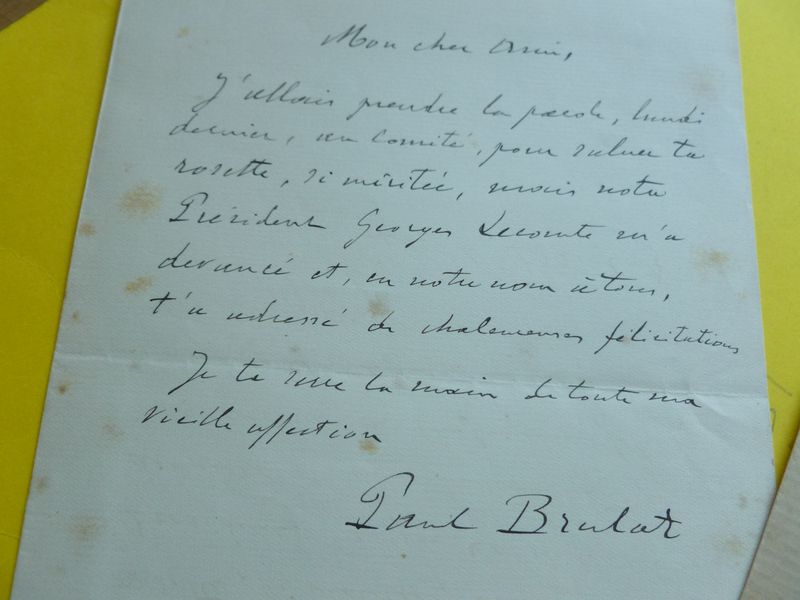 Mon cher Ami,
J'allais prendre la parole, lundi
dernier, au Comité, pour saluer ta
rosette, si méritée, mais notre
Président Georges Lecomte m'a
devancé et, en notre nom à tous,
t'a adressé de chaleureuses félicitations
Je te serre la main de toute ma
vieille affection
Paul Brulat